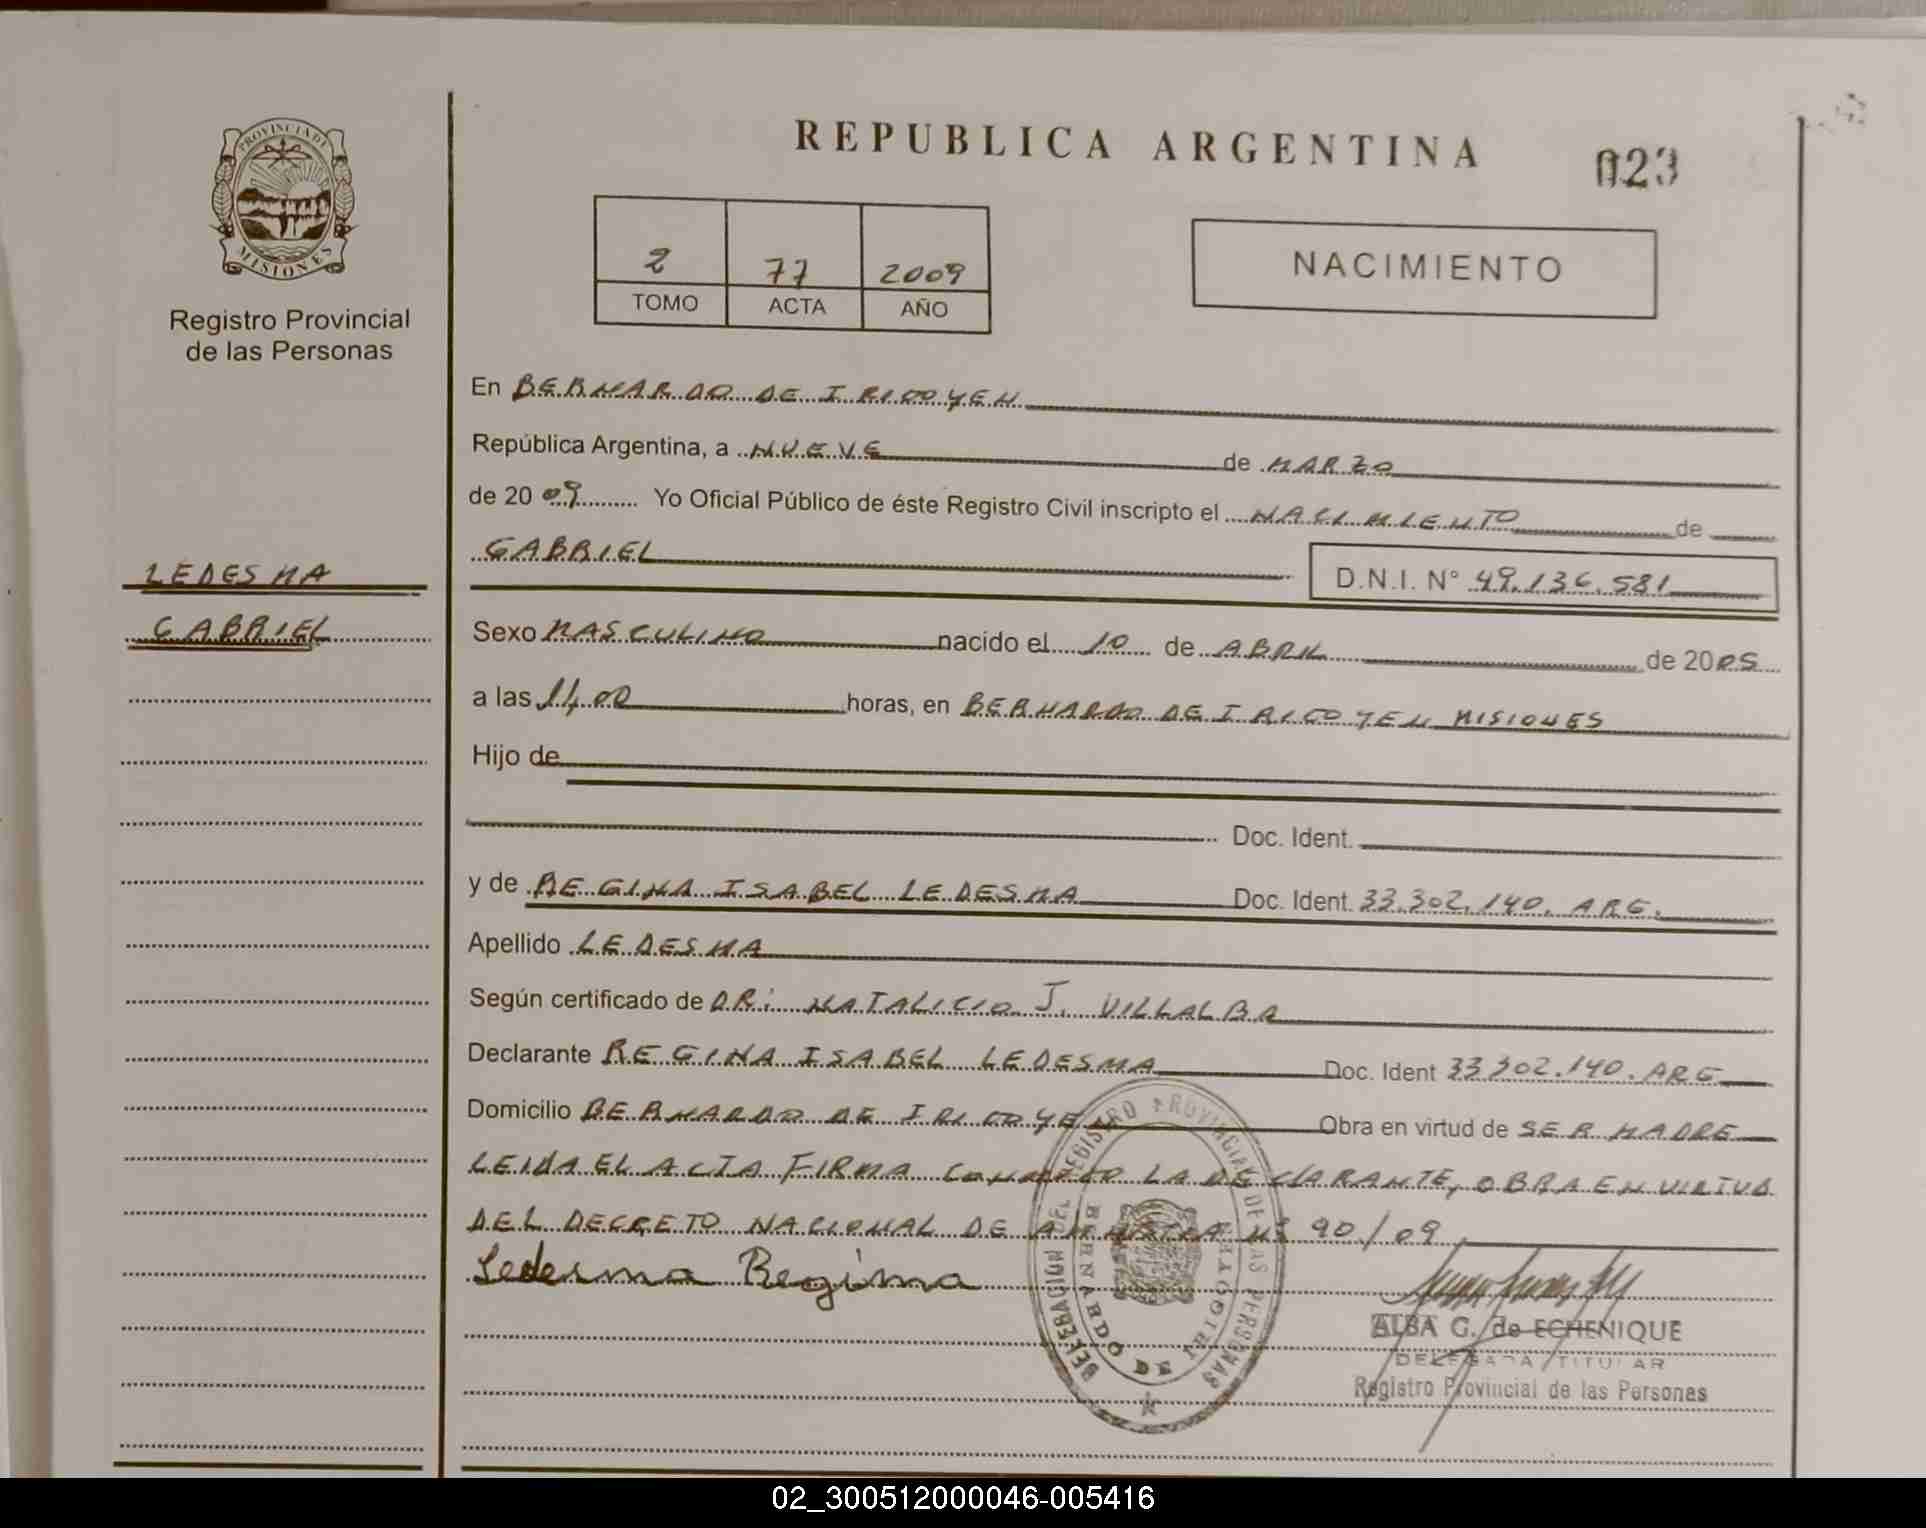 PROVINCIA DE
MISIONES
Registro Provincial
de las Personas
LEDESMA
GABRIEL
REPUBLICA ARGENTINA
023
2 77 2009
TOMO ACTA AÑO
NACIMIENTO
En BERNARDO DE IRIGOYEN
República Argentina, a NUEVE de MARZO
de 2009 Yo Oficial Público de éste Registro Civil inscripto el NACIMIENTO de
GABRIEL D.N.I. N° 49.136.581
Sexo MASCULINO nacido el 10 de ABRIL de 2005
a las 11,00 horas, en BERNARDO DE IRIGOYEN MISIONES
Hijo de
Doc. Ident.
y de REGINA ISABEL LEDESMA Doc. Ident. 33.302.140. ARG.
Apellido LEDESMA
Según certificado de DR: NATALICIO J. VILLALBA
Declarante REGINA ISABEL LEDESMA Doc. Ident 33302.140. ARG
Domicilio BERNARDO DE IRIGOYE Obra en virtud de SER MADRE
LEIDA EL ACTA FIRMA CONMIGO LA DECLARANTE, OBRA EN VIRTUD
DEL DECRETO NACIONAL DE AMNISTIA Nº 90/09
Ledesma Regina
DELEGACION DEL REGISTRO PROVINCIAL DE LAS PERSONAS
BERNARDO DE IRIGOYEN
ALBA G. de ECHENIQUE
DELEGADA TITULAR
Registro Provincial de las Personas
02_300512000046-005416